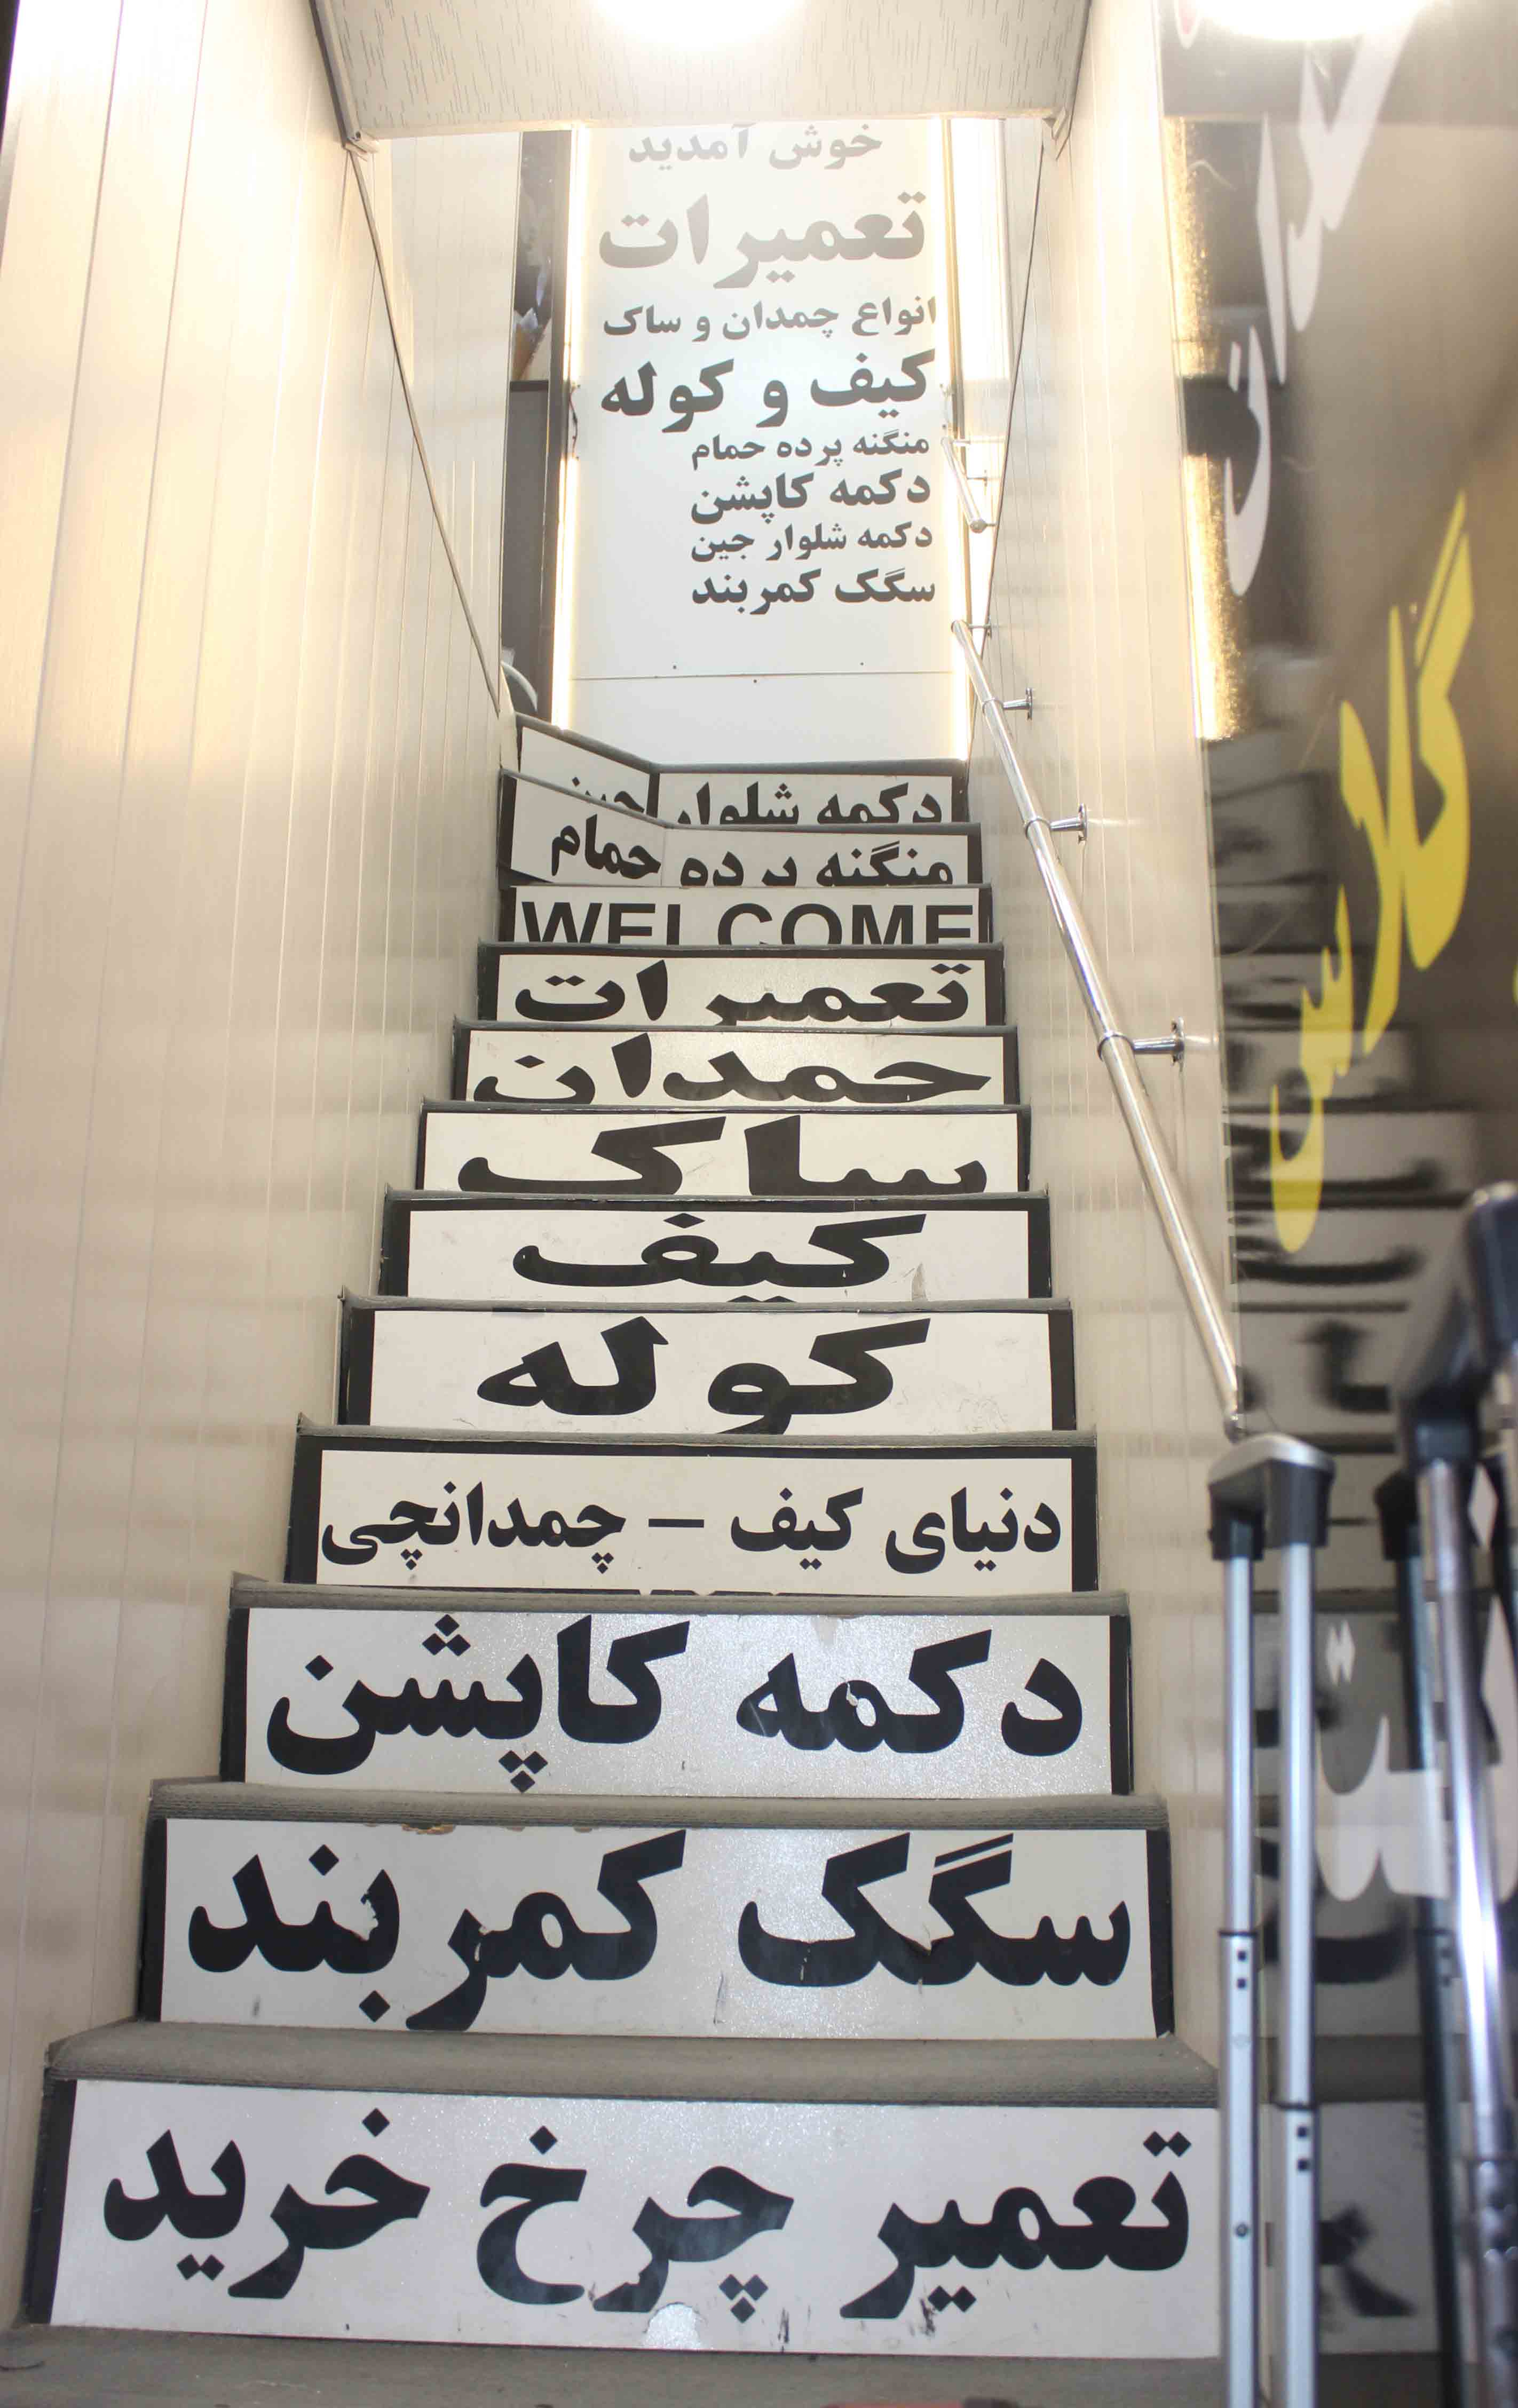 خوش آمدید
تعمیرات
انواع چمدان و ساک
کیف و کوله
منگنه پرده حمام
دکمه کاپشن
دکمه شلوار جین
سگک کمربند
دکمه شلوار جین
منگنه پرده حمام
WELCOME
تعمیرات
چمدان
ساک
کیف
کوله
دنیای کیف – چمدانچی
دکمه کاپشن
سگک کمربند
تعمیر چرخ خرید
گلاس